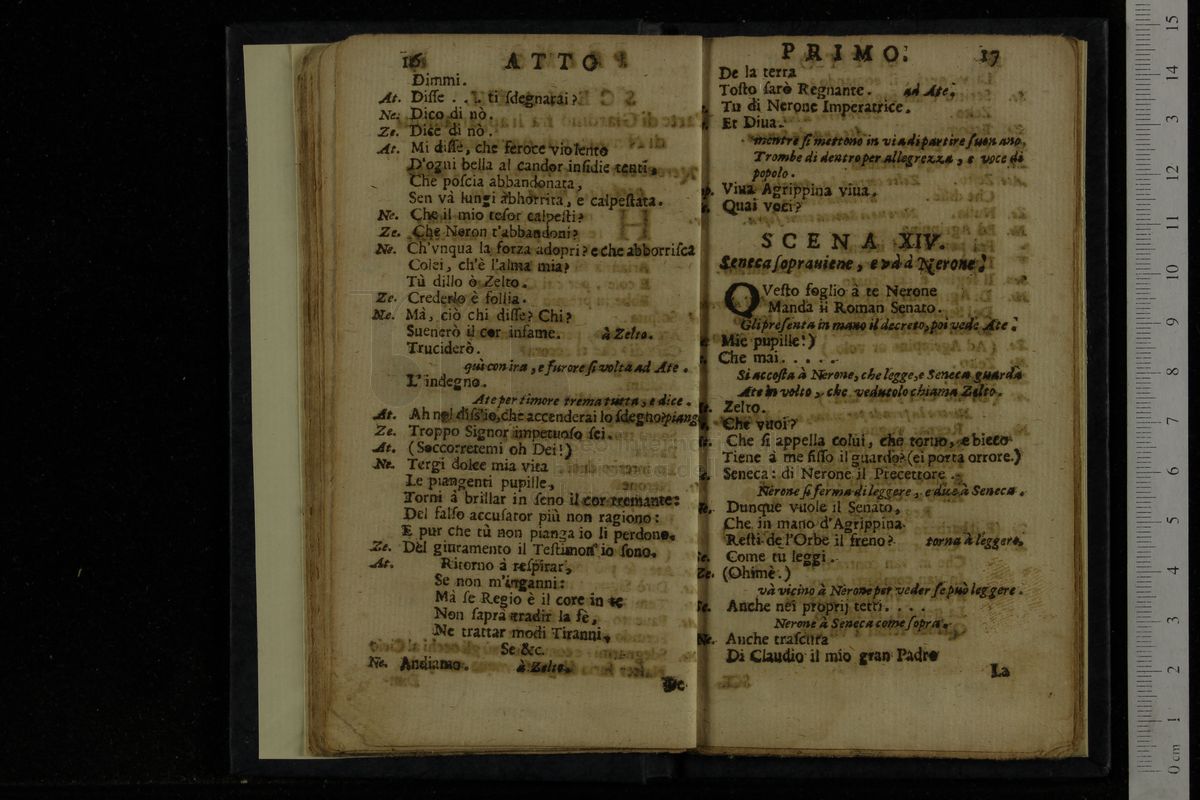 16 ATTO
Dimmi.
At. Diſſe . . . ti ſdegnarai?
Ne. Dico di nò.
Ze. Dice di nò.
At. Mi diſſe, che feroce violento
D'ogni bella al candor inſidie tenti,
Che poſcia abbandonata,
Sen và lungi abhorrita, e calpeſtata.
Ne. Che il mio teſor calpeſti?
Ze. Che Neron t'abbandoni?
Ne. Ch'vnqua la forza adopri? e che abborriſca
Colei, ch'è l'alma mia?
Tù dillo ò Zelto.
Ze. Crederlo è follia.
Ne. Mà, ciò chi diſſe? Chi?
Suenerò il cor infame. à Zelto.
Truciderò.
quì con ira, e furore ſi volta ad Ate.
L'indegno.
Ate per timore trema tutta, e dice.
At. Ah nol diſs'io, che accenderai lo ſdegno? piang
Ze. Troppo Signor impetuoſo ſei.
At. (Soccorretemi oh Dei!)
Ne. Tergi dolce mia vita
Le piangenti pupille,
Torni à brillar in ſeno il cor tremante:
Del falſo accuſator più non ragiono:
E pur che tù non pianga io li perdono.
Ze. Del giuramento il Teſtimon' io ſono.
At. Ritorno à reſpirar,
Se non m'inganni:
Mà ſe Regio è il core in te
Non ſaprà tradir la fè,
Ne trattar modi Tiranni,
Se &c.
Ne. Andiamo. à Zelto.
De
PRIMO. 17
De la terra
Toſto ſarò Regnante. ad Ate.
Tu di Nerone Imperatrice.
Et Diua.
mentre ſi mettono in via di partire ſuonano,
Trombe di dentro per allegrezza, e voce di
popolo.
Viua Agrippina viua.
Quai voci?
SCENA XIV.
Seneca ſoprauiene, e và à Nerone.
QVeſto foglio à te Nerone
Manda il Roman Senato.
Gli preſenta in mano il decreto, poi vede Ate.
Mie pupille!)
Che mai. . . . .
Si accoſta à Nerone, che legge, e Seneca guarda
Ate in volto, che vedutolo chiama Zelto.
Zelto.
Che vuoi?
Che ſi appella colui, che toruo, e bieco
Tiene à me fiſſo il guardo? (ei porta orrore.)
Seneca: di Nerone il Precettore.
Nerone ſi ferma di leggere, e dice à Seneca.
Dunque vuole il Senato,
Che in mano d'Agrippina
Reſti de l'Orbe il freno? torna à leggere.
Come tu leggi.
Ze. (Ohimè.)
và vicino à Nerone per veder ſe può leggere.
Anche nei proprij tetti. . . .
Nerone à Seneca come ſopra.
Ne. Anche traſcura
Di Claudio il mio gran Padre
La
0 cm 1 2 3 4 5 6 7 8 9 10 11 12 13 14 15